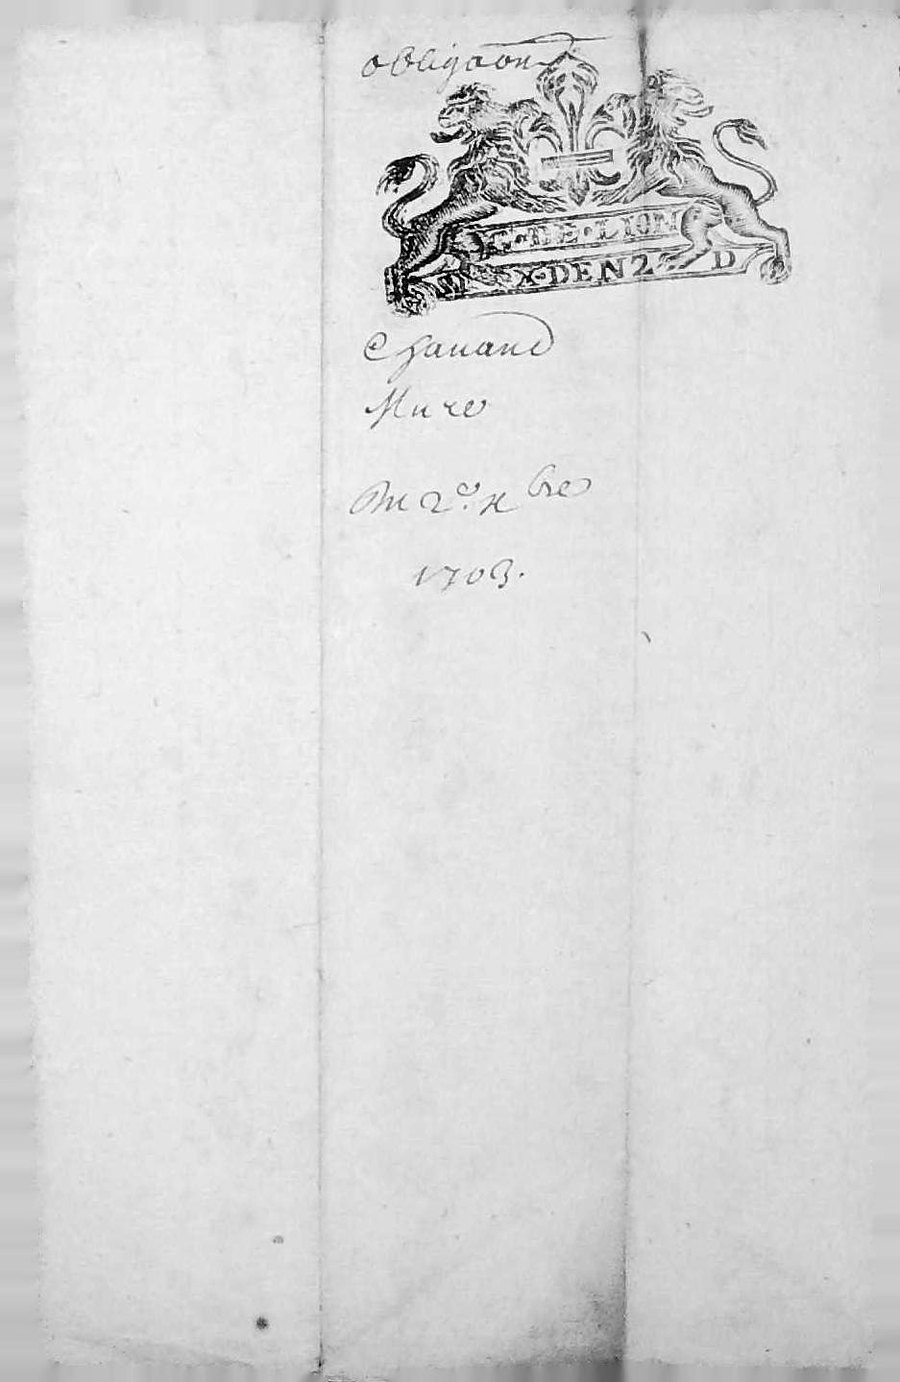 obligaon
G·DE·LION
SIX·DEN 2 D
Chauand
Mure
Du 2e. x bre
1703.